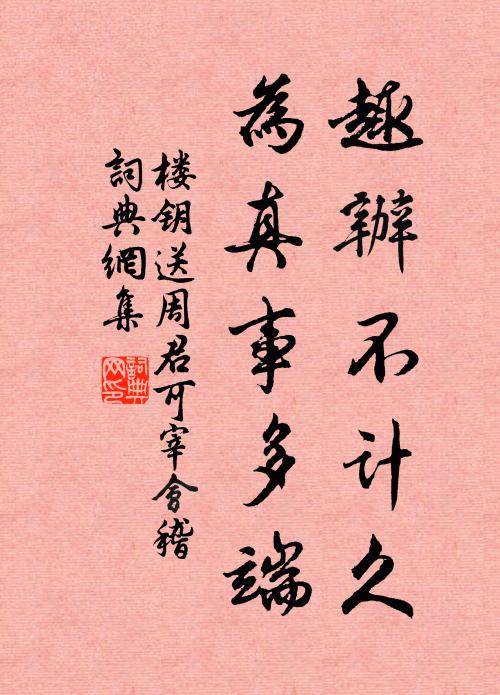 趣辦不計久
為真事多端
楼钥送周君可宰會稽
詞典網集
詞典
网印